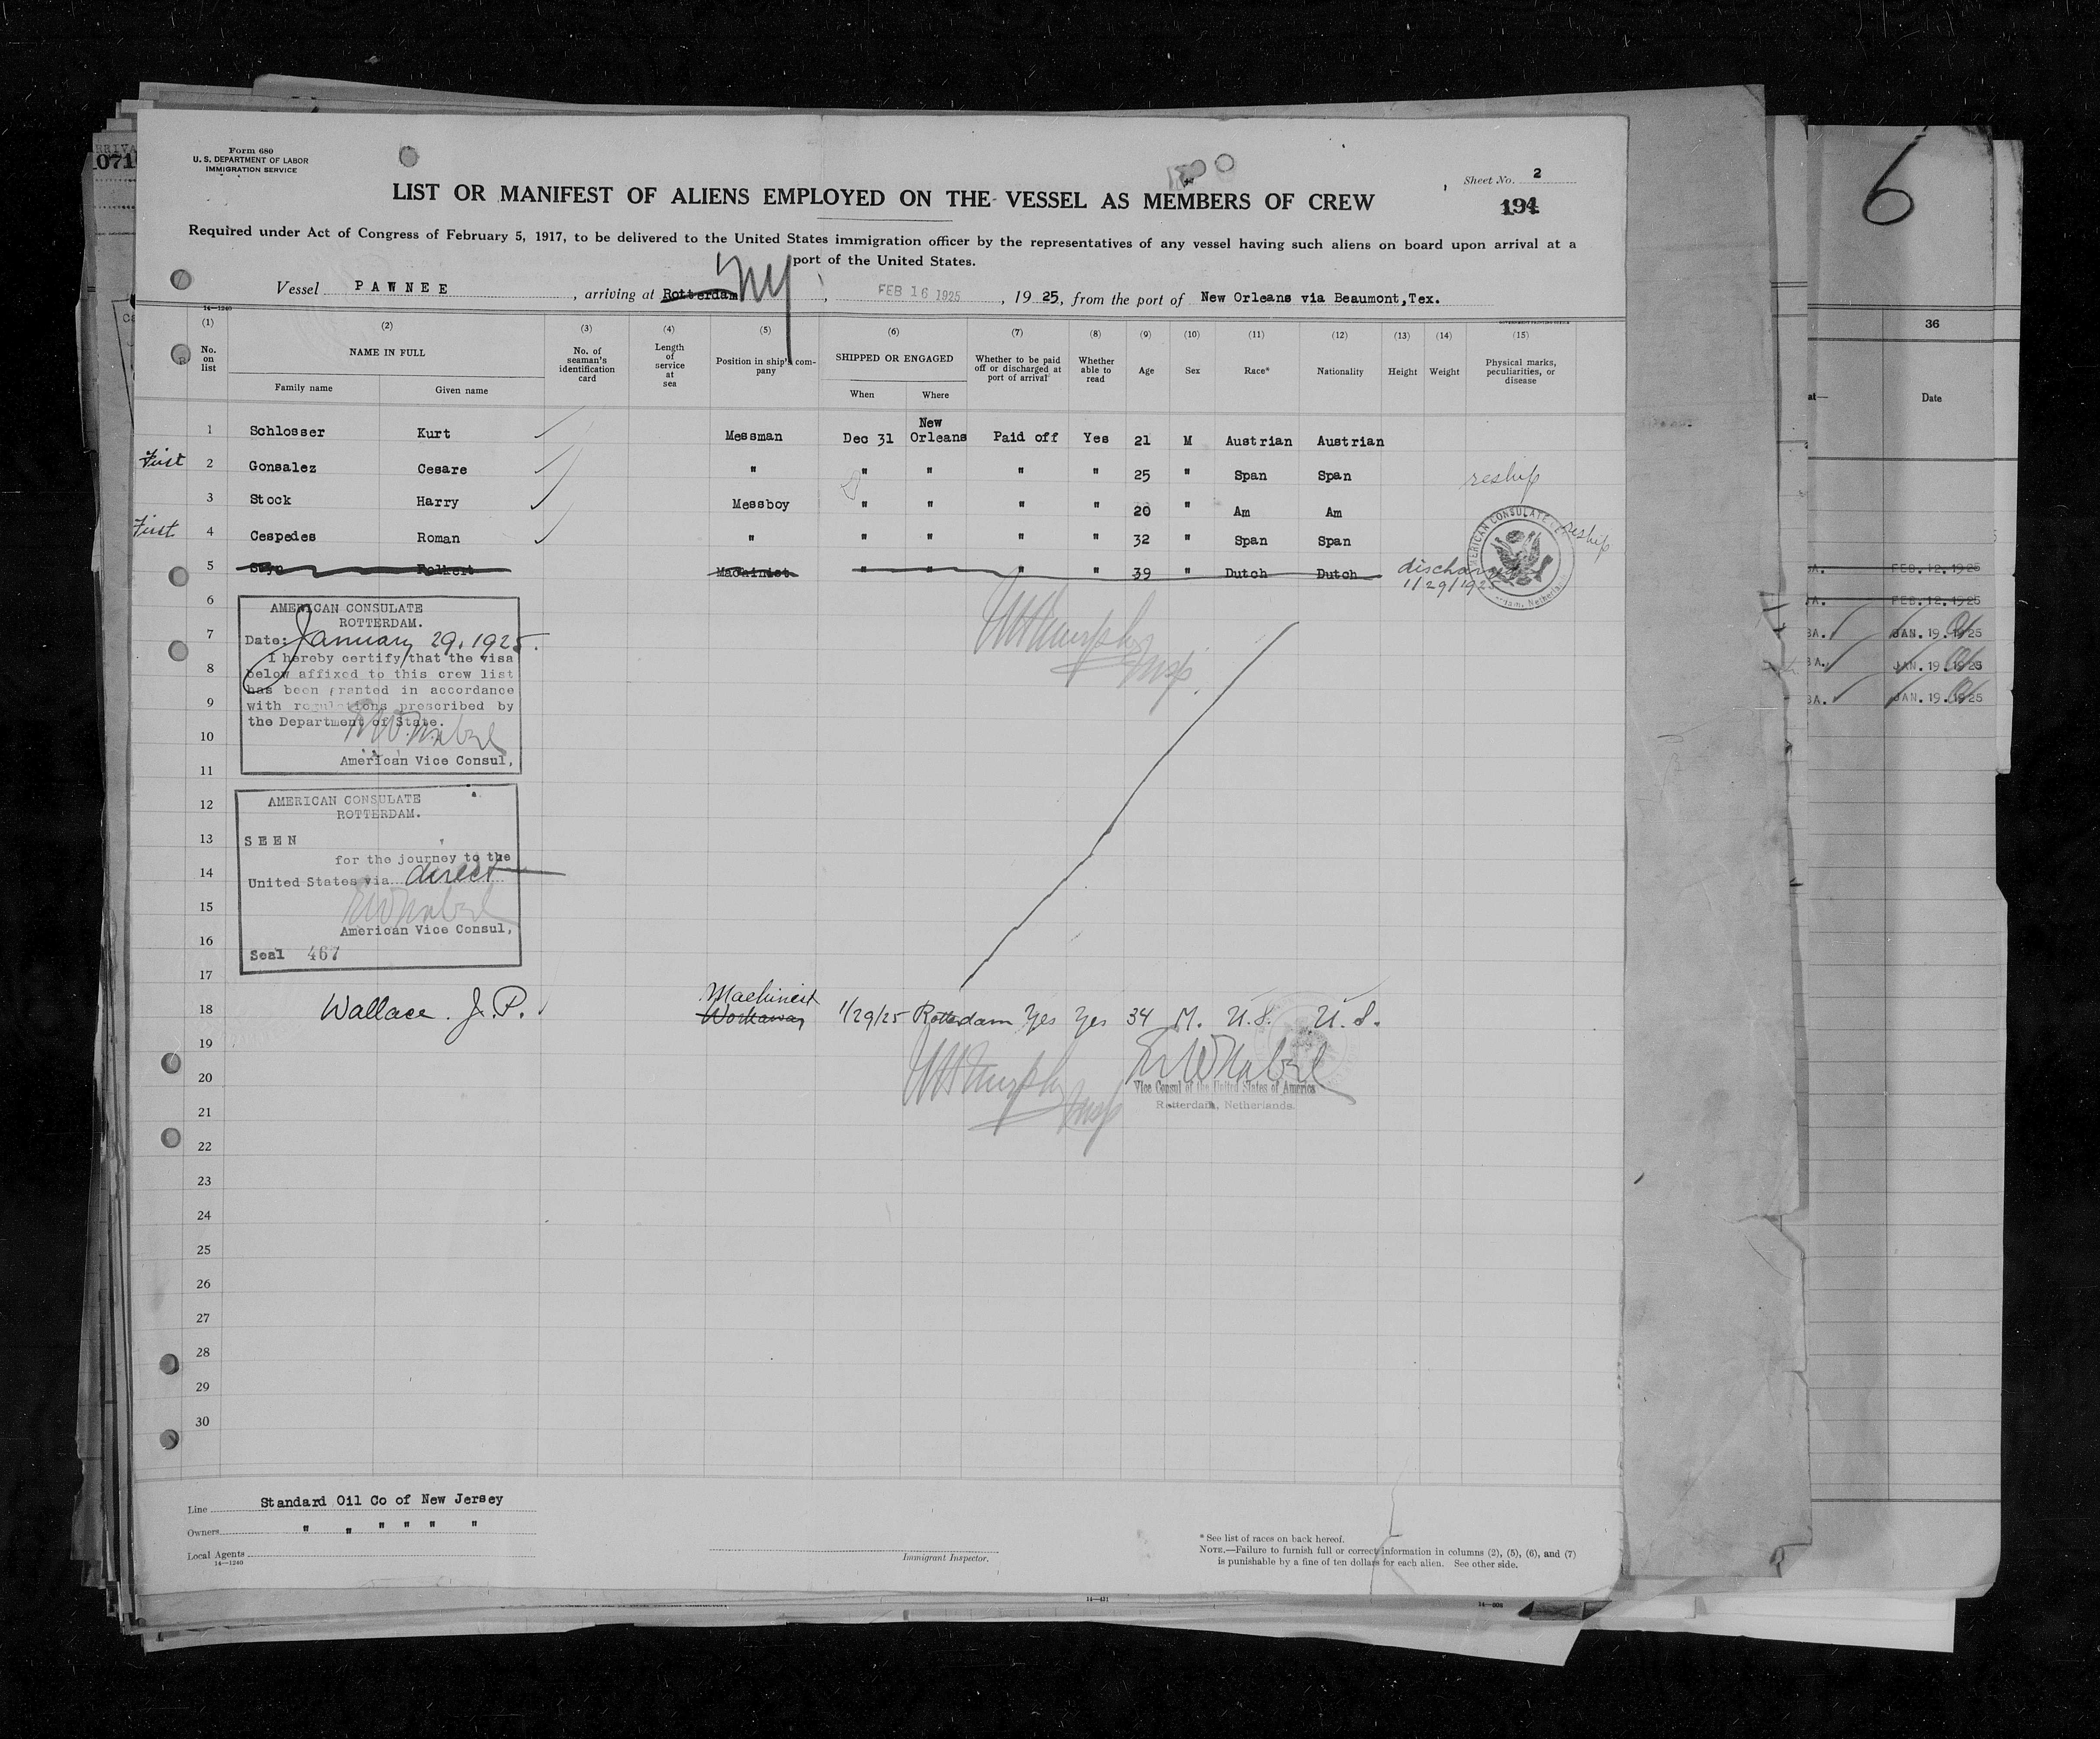 Form 680
U. S. DEPARTMENT OF LABOR
IMMIGRATION SERVICE
Sheet No. 2
194
LIST OR MANIFEST OF ALIENS EMPLOYED ON THE VESSEL AS MEMBERS OF CREW
Required under Act of Congress of February 5, 1917, to be delivered to the United States immigration officer by the representatives of any vessel having such aliens on board upon arrival at a
port of the United States.
Vessel PAWNEE, arriving at Rotterdam NY, FEB 16 1925, 1925, from the port of New Orleans via Beaumont,Tex.
14—1240
(1) (2) (3) (4) (5) (6) (7) (8) (9) (10) (11) (12) (13) (14) (15)
No. on list
NAME IN FULL
Family name Given name
No. of seaman's identification card
Length of service at sea
Position in ship's company
SHIPPED OR ENGAGED
When Where
Whether to be paid off or discharged at port of arrival
Whether able to read
Age Sex Race* Nationality Height Weight
Physical marks, peculiarities, or disease
1 Schlosser Kurt Messman Dec 31 New Orleans Paid off Yes 21 M Austrian Austrian
First 2 Gonsalez Cesare " " " " " 25 " Span Span reship
3 Stock Harry Messboy " " " " 20 " Am Am
First 4 Cespedes Roman " " " " " 32 " Span Span reship
5 Folkert Machinist " " " " 39 " Dutch Dutch discharged 1/29/1925
AMERICAN CONSULATE
6
7
8
9
10
11
12
13
14
15
16
17
AMERICAN CONSULATE
ROTTERDAM.
Date: January 29, 1925.
I hereby certify that the visa
below affixed to this crew list
has been granted in accordance
with regulations prescribed by
the Department of State.
American Vice Consul,
W H Murphy Insp.
AMERICAN CONSULATE
ROTTERDAM.
SEEN
for the journey to the
United States via direct
American Vice Consul,
Seal 467
18 Wallace. J. P. Machinist Workaway 1/29/25 Rotterdam Yes Yes 34 M. U.S. U.S.
W H Murphy Insp
Vice Consul of the United States of America
Rotterdam, Netherlands.
19
20
21
22
23
24
25
26
27
28
29
30
Line Standard Oil Co of New Jersey
Owners " " " " " "
Local Agents
14—1240
Immigrant Inspector.
* See list of races on back hereof.
NOTE.—Failure to furnish full or correct information in columns (2), (5), (6), and (7)
is punishable by a fine of ten dollars for each alien. See other side.
14—421
6
36
Date
FEB. 12. 1925
FEB. 12. 1925
JAN. 19. 1925
JAN. 19. 1925
JAN. 19. 1925
071